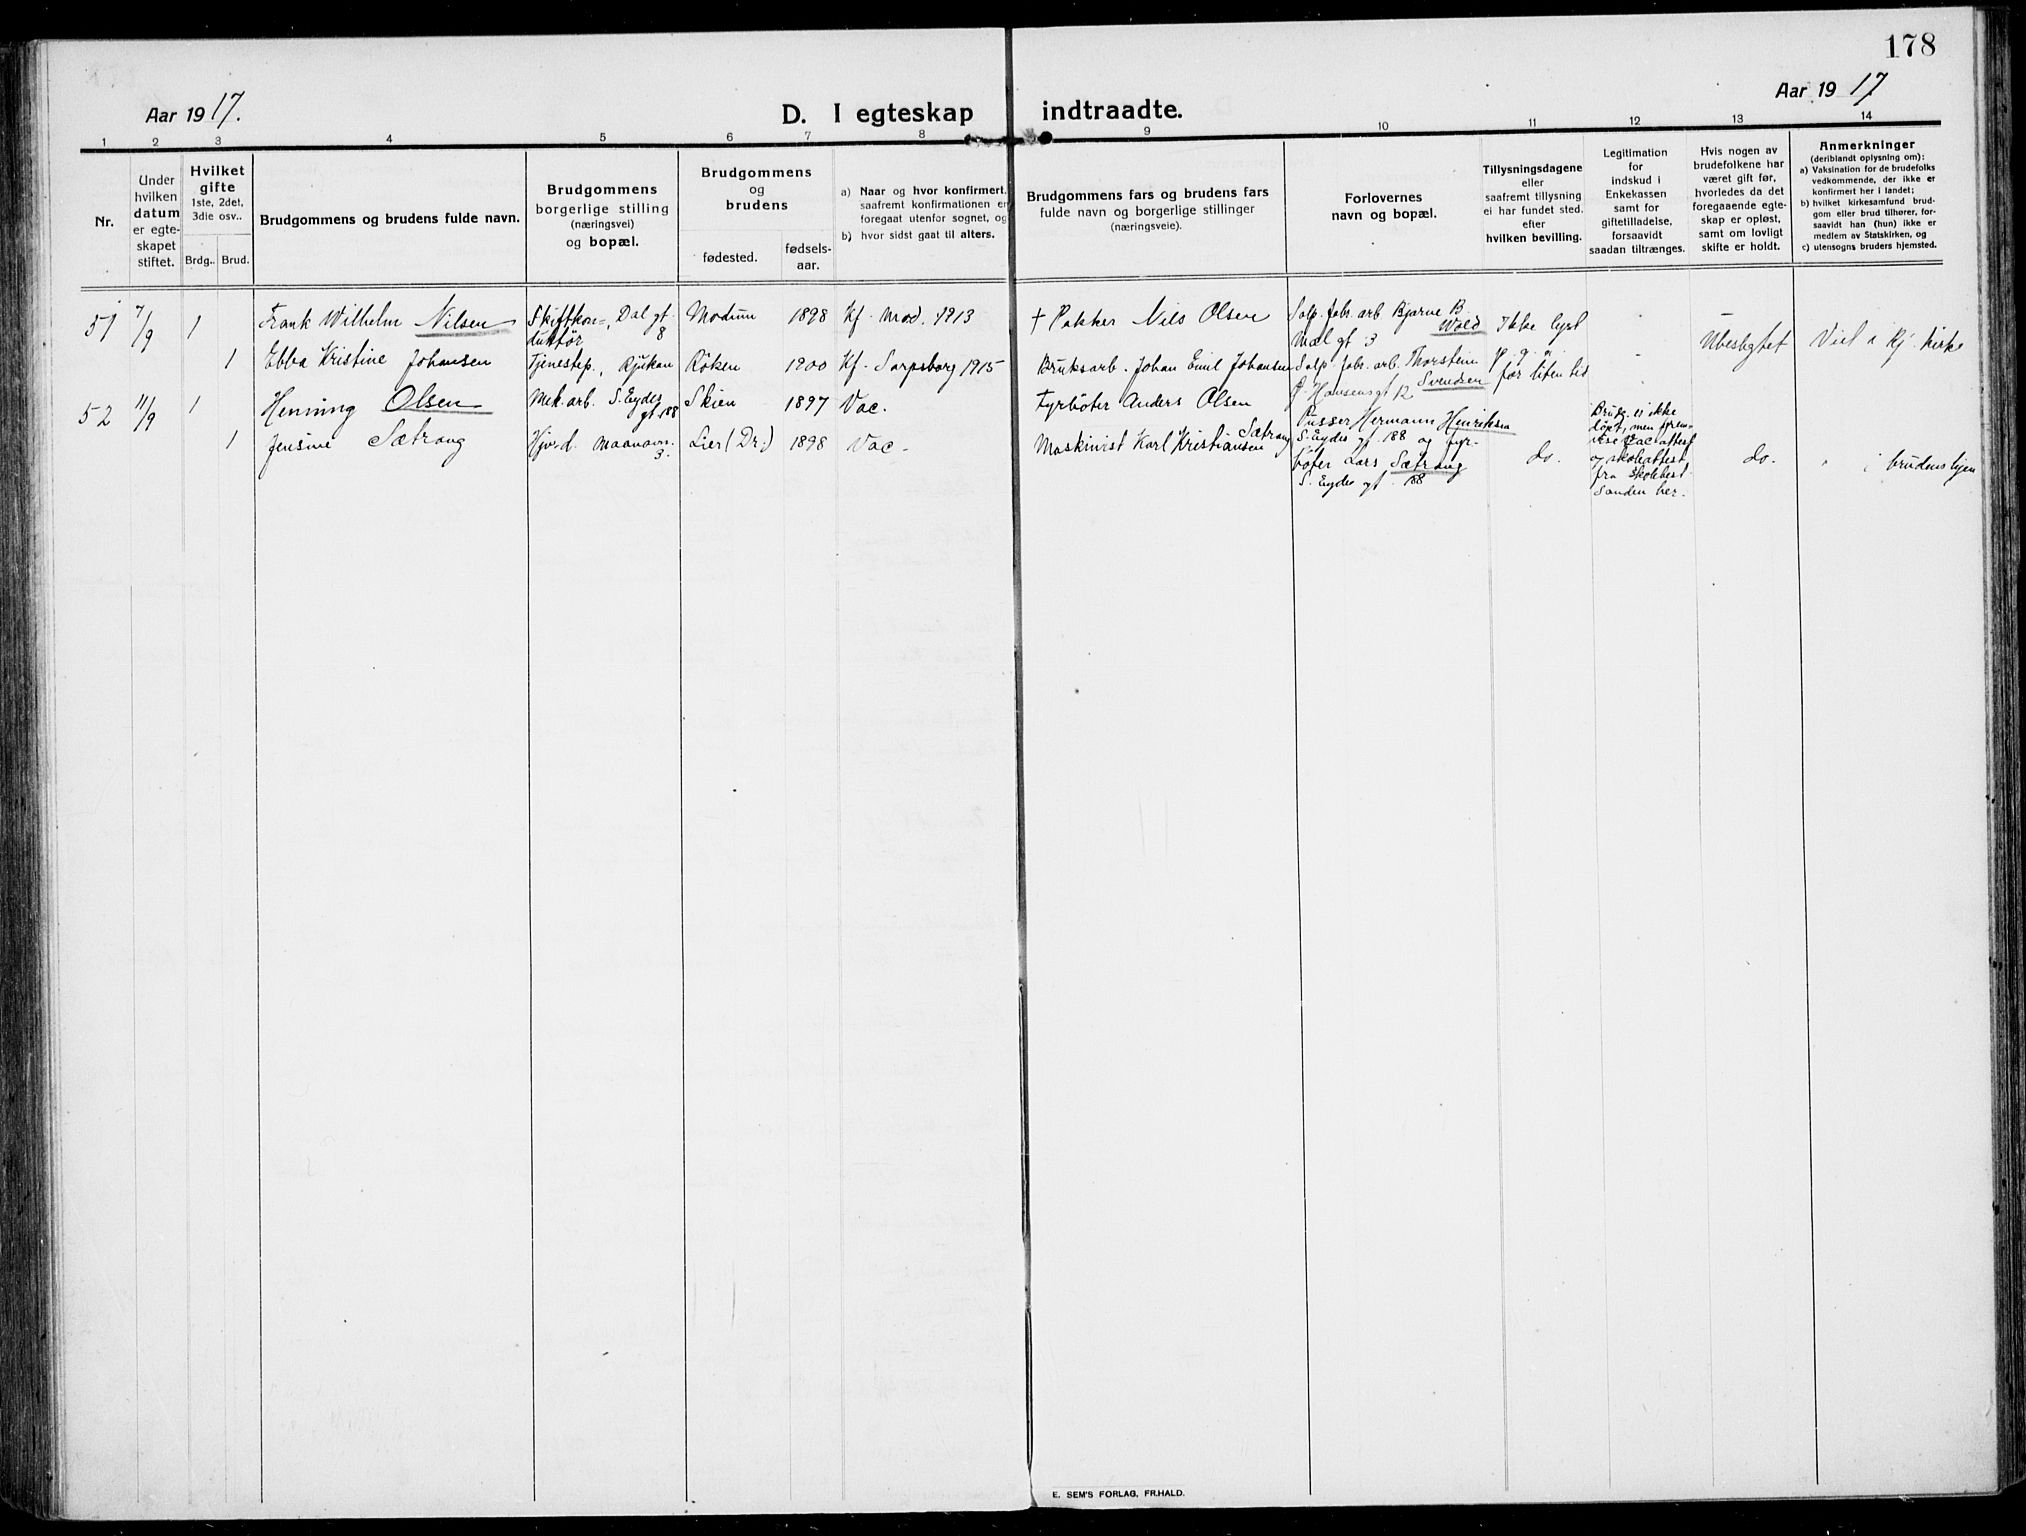 178
Aar 1917.
D. I egteskap indtraadte.
Aar 1917
1 2 3 4 5 6 7 8 9 10 11 12 13 14
Nr.
Under
hvilken
datum
er egte-
skapet
stiftet.
Hvilket
gifte
1ste, 2det,
3die osv..
Brdg.. Brud.
Brudgommens og brudens fulde navn.
Brudgommens
borgerlige stilling
(næringsvei)
og bopæl.
Brudgommens
og
brudens
fødested.
fødsels-
aar.
a) Naar og hvor konfirmert.
saafremt konfirmationen er
foregaat utenfor sognet, og
b) hvor sidst gaat til alters.
Brudgommens fars og brudens fars
fulde navn og borgerlige stillinger
(næringsveie).
Forlovernes
navn og bopæl.
Tillysningsdagene
eller
saafremt tillysning
ei har fundet sted.
efter
hvilken bevilling.
Legitimation
for
indskud i
Enkekassen
samt for
giftetilladelse,
forsaavidt
saadan tiltrænges.
Hvis nogen av
brudefolkene har
været gift før,
hvorledes da det
foregaaende egte-
skap er opløst,
samt om lovligt
skifte er holdt.
Anmerkninger
(deriblandt oplysning om):
a) Vaksination for de brudefolks
vedkommende, der ikke er
konfirmert her i landet;
b) hvilket kirkesamfund brud-
gom eller brud tilhører, for-
saavidt han (hun) ikke er
medlem av Statskirken, og
c) utensogns bruders hjemsted.
51 7/9 1 Frank Wilhelm Nilsen
Skiftkon=, Dal gt. 8
duktør
Modum 1898 Kf. Mod. 1913
† Pakker Nils Olsen
Salp. fabr. arb Bjarne B.
Wold
Mæl gt 3
Ikke lyst
p. g. a.
for liten tid
Ubesligtet
Viet i Rj. kirke
1 Ebba Kristine Johansen
Tjenestep., Rjukan Røken 1900 Kf. Sarpsborg 1915
Bruksarb. Johan Emil Johansen
Salp. fabr. arb. Thorstein
Svendsen
Hansensgt 12
52 11/9 1 Henning Olsen
Mek. arb. S. Eydes
gt 188
Skien 1897 Vac.
Fyrbøter Anders Olsen
Pusser Hermann Henriksen
S. Eydes gt. 188 og fyr-
bøter Lars Sætrang
S. Eydes gt. 188
do.
Brudg. er ikke
døpt, men frem-
vise vac attest
og skoleattest
fra skolebest.
Sanden her.
do.
" i brudens hjem
1 Jensine Sætrang
Hjv.d. Maanavn.
3.
Lier (Dr.) 1898 Vac.
Maskinist Karl Kristiansen
Sætrang
E. SEM'S FORLAG, FR.HALD.